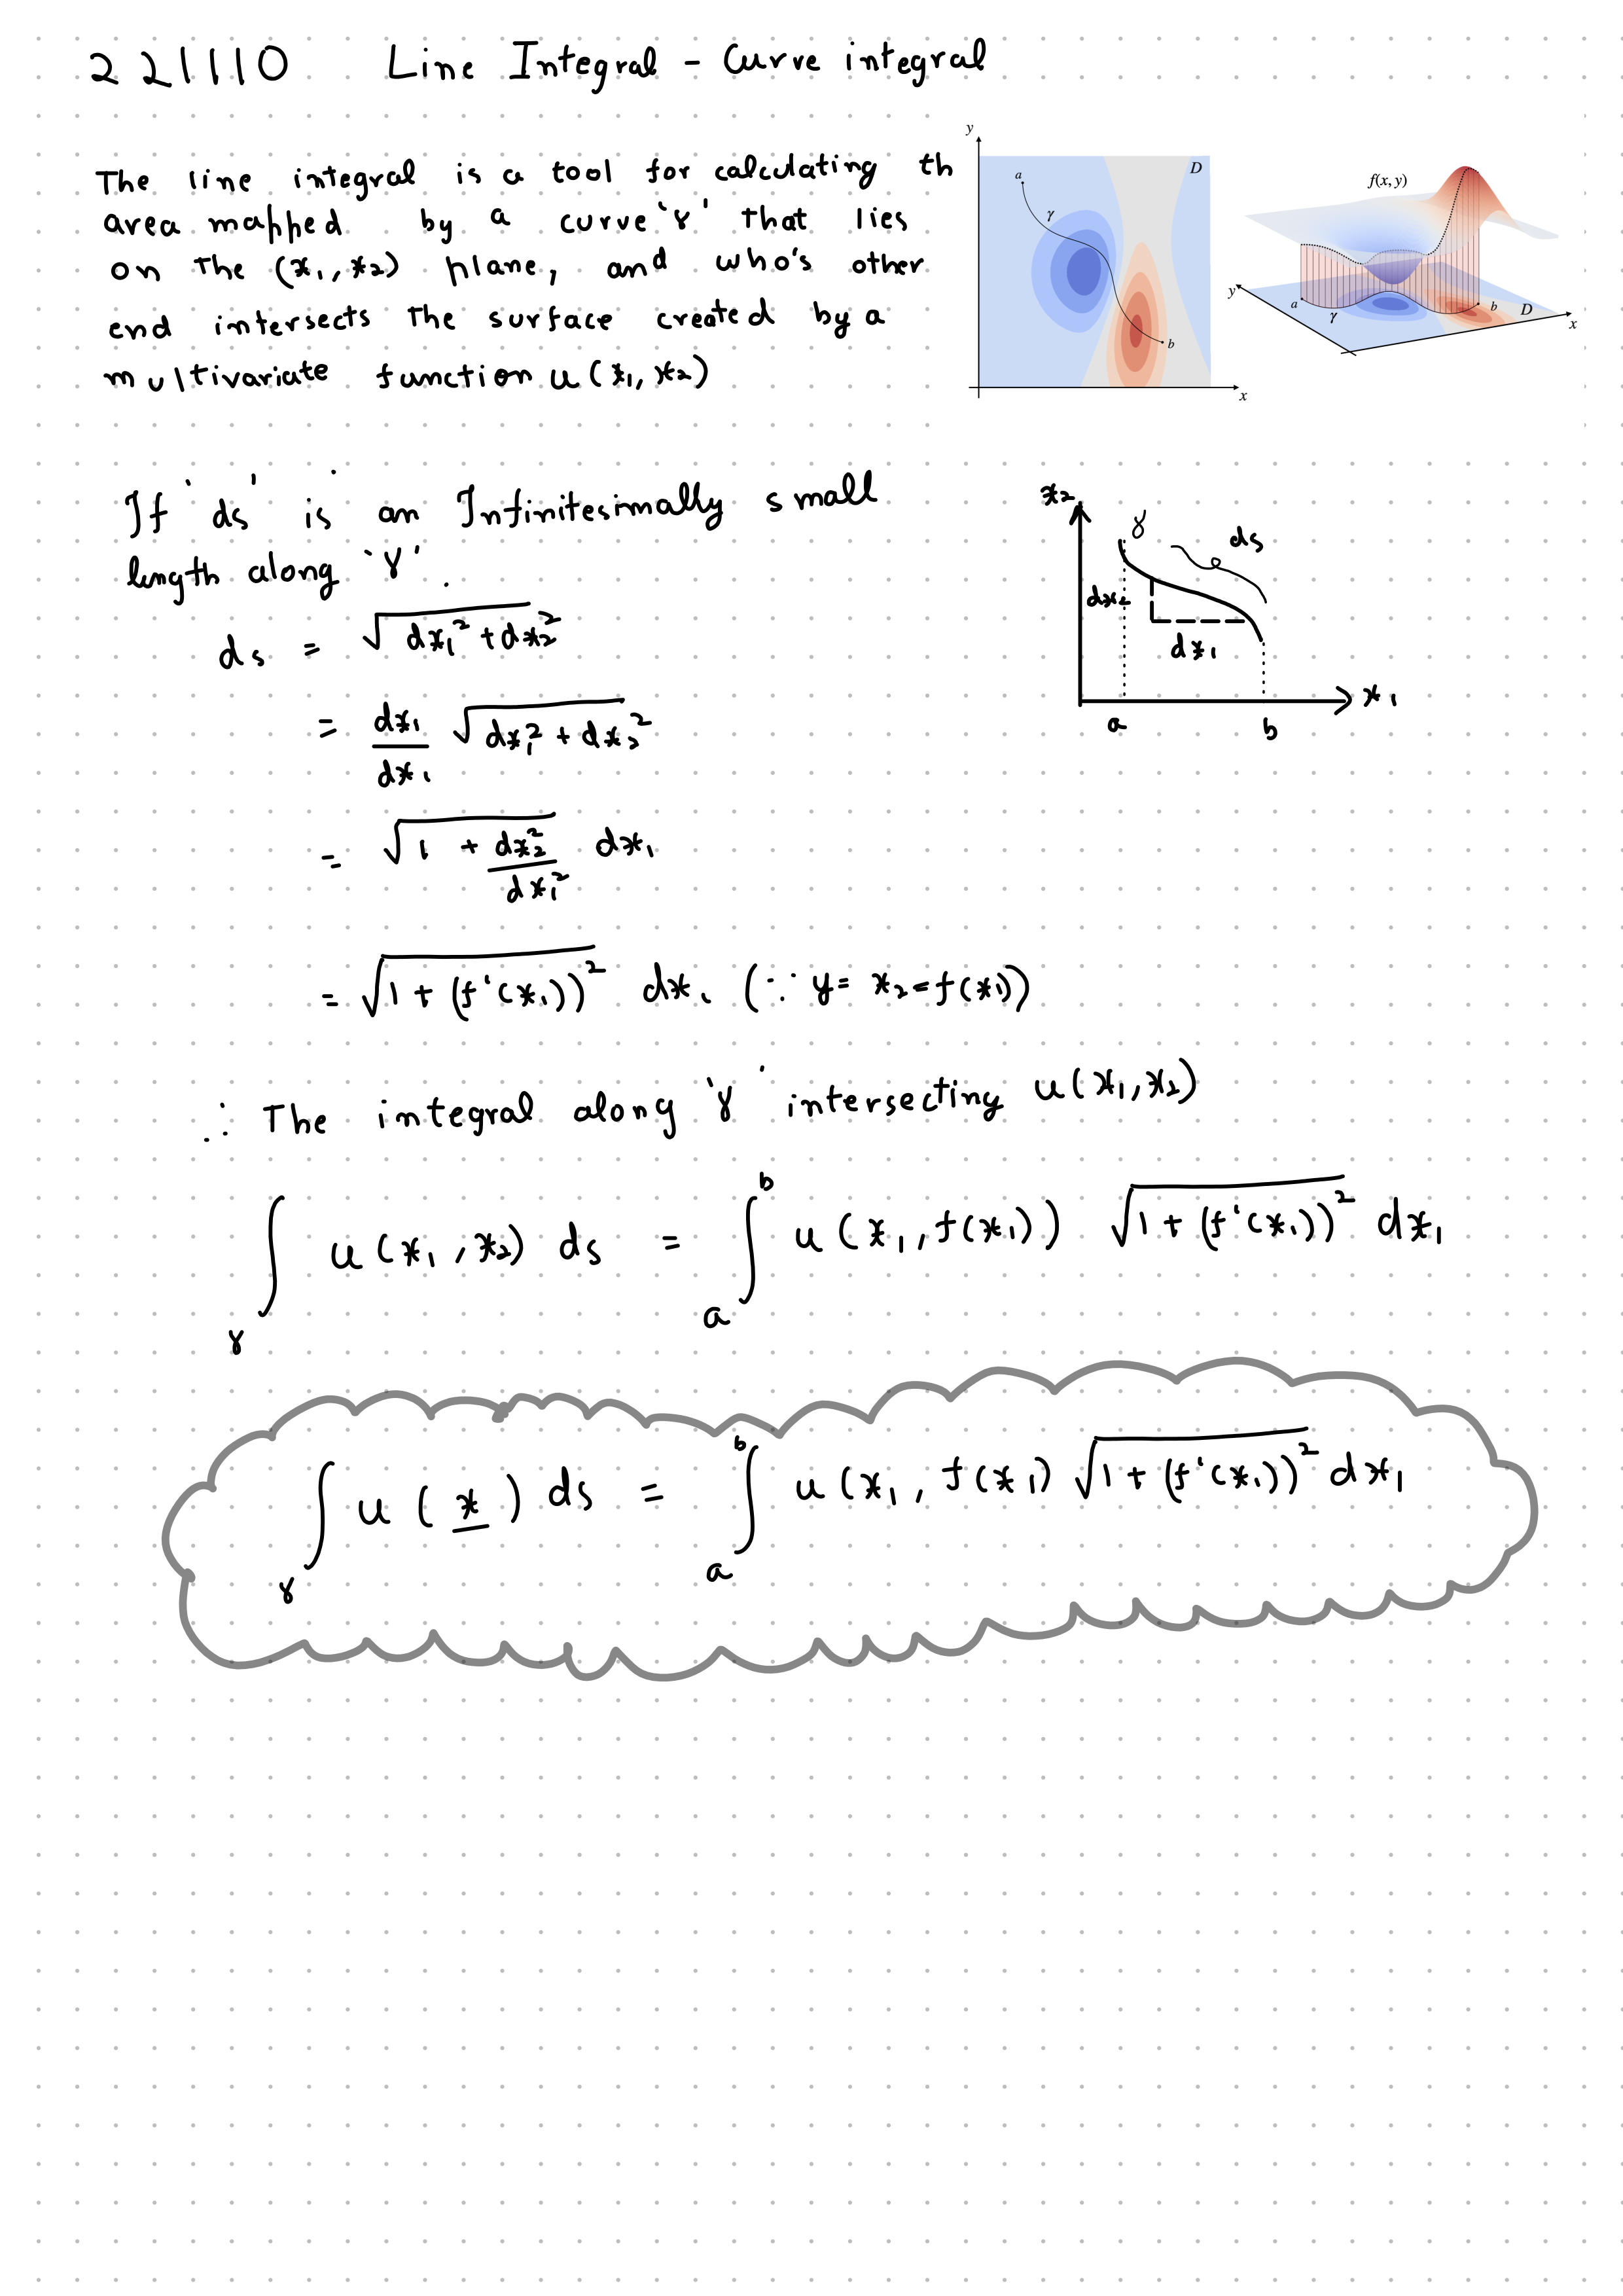 221110 Line Integral - Curve integral
The line integral is a tool for calculating th
area mapped by a curve 'γ' that lies
on the (x₁, x₂) plane, and who's other
end intersects the surface created by a
multivariate function u(x₁, x₂)
y
a
γ
D
b
x
f(x, y)
y
a
γ
b
D
x
If 'ds' is an Infinitesimally small
length along 'γ'.
ds = √(dx₁² + dx₂²)
= dx₁/dx₁ √(dx₁² + dx₂²)
= √(1 + dx₂²/dx₁²) dx₁
= √(1 + (f'(x₁))²) dx₁ (∵ y = x₂ = f(x₁))
x₂
γ
ds
dx₂
dx₁
x₁
a
b
∴ The integral along 'γ' intersecting u(x₁, x₂)
∫γ u(x₁, x₂) ds = ∫ₐᵇ u(x₁, f(x₁)) √(1 + (f'(x₁))²) dx₁
∫γ u(x) ds = ∫ₐᵇ u(x₁, f(x₁) √(1 + (f'(x₁))²) dx₁